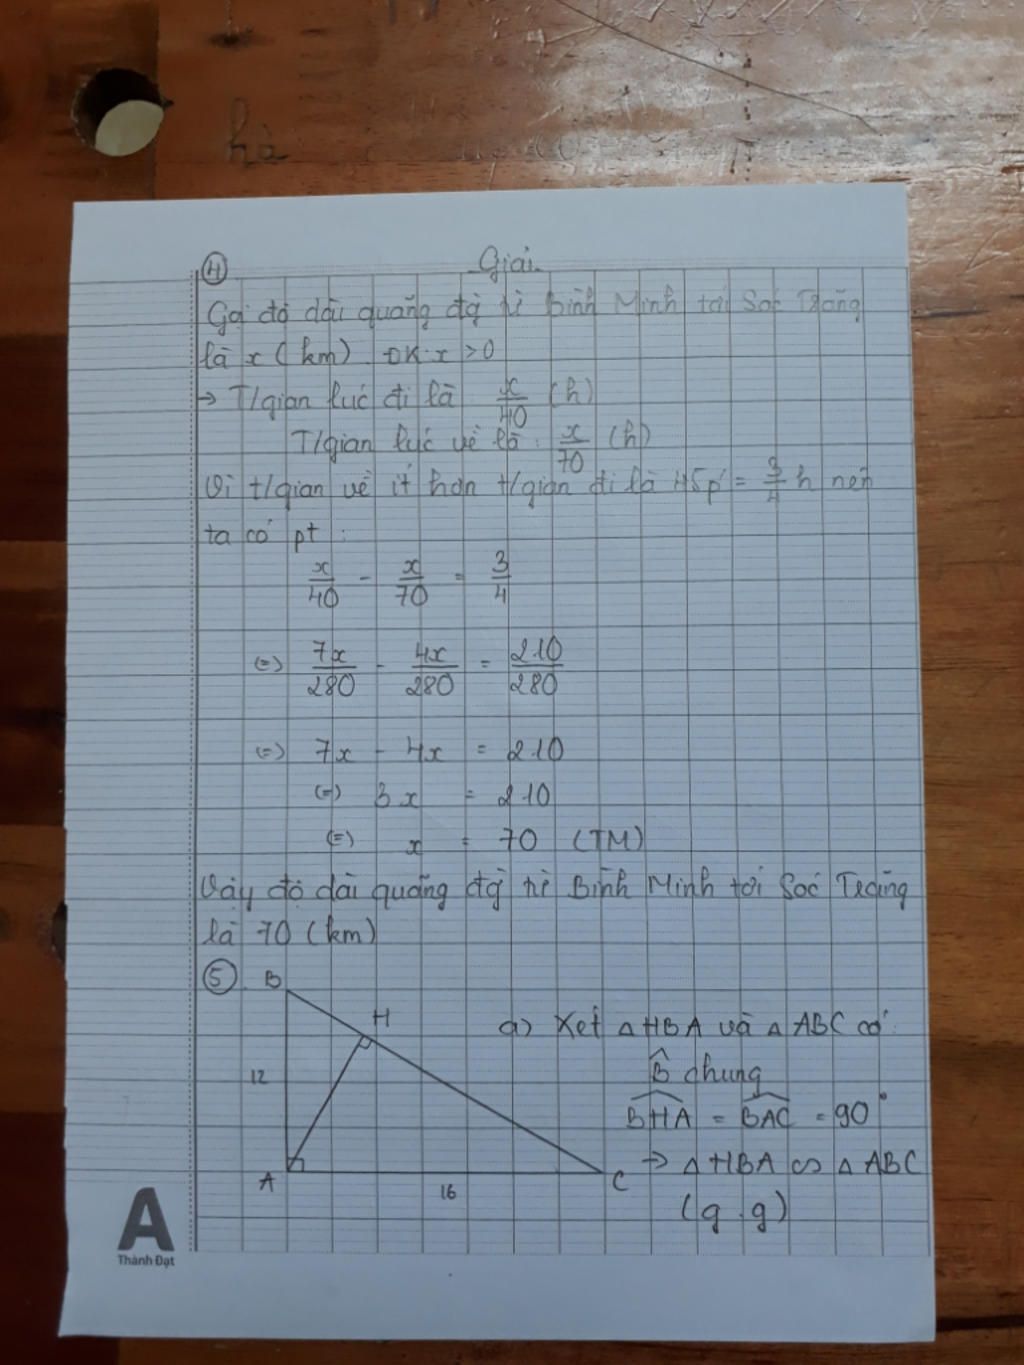 hà
④ Giải
Gọi độ dài quãng đg từ Bình Minh tới Sóc Trăng
là x (km) ĐK: x > 0
→ T/gian lúc đi là x/40 (h)
T/gian lúc về là: x/70 (h)
Vì t/gian về ít hơn t/gian đi là 45p' = 3/4 h nên
ta có pt:
x/40 - x/70 = 3/4
(=) 7x/280 - 4x/280 = 210/280
(=) 7x - 4x = 210
(=) 3x = 210
(=) x = 70 (TM)
Vậy độ dài quãng đg từ Bình Minh tới Sóc Trăng
là 70 (km)
⑤ B
H
12
A
16
C
a) Xét △HBA và △ABC có:
B̂ chung
BHA = BAC = 90°
→ △HBA ∽ △ABC
(g.g)
A
Thành Đạt